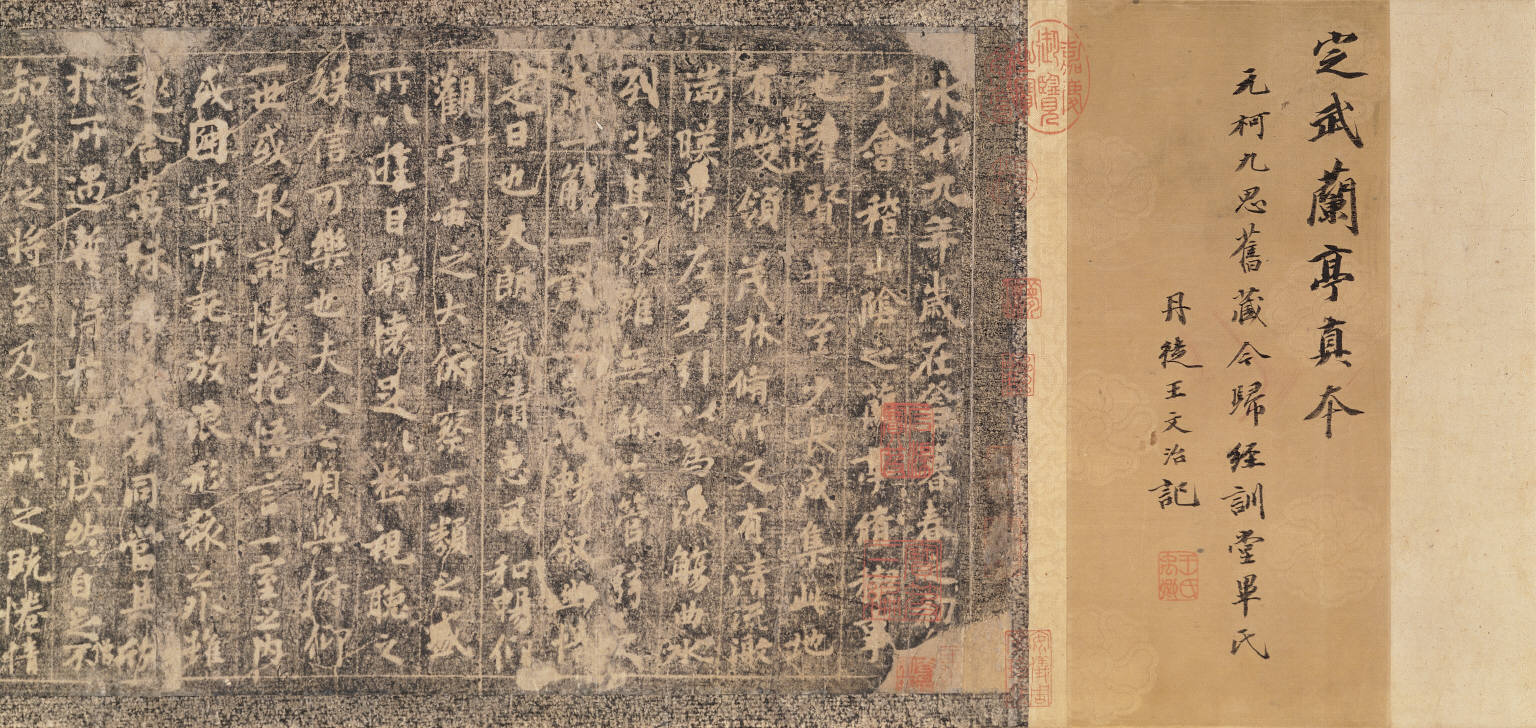 定武蘭亭真本
元柯九思舊藏今歸經訓堂畢氏
丹徒王文治記
王氏禹卿
永和九年歲在癸暮春之初
于會稽山陰之蘭亭脩禊事
也羣賢畢至少長咸集此地
有崇山峻領茂林脩竹又有清流激
湍暎帶左右引以為流觴曲水
列坐其次雖無絲竹管弦之
盛一觴一詠暢敘幽情
是日也天朗氣清惠風和暢仰
觀宇宙之大俯察品類之盛
所以遊目騁懷足以極視聽之
娛信可樂也夫人之相與俯仰
一世或取諸懷抱悟言一室之內
或因寄所託放浪形骸之外雖
趣舍萬殊靜不同當其欣
於所遇蹔得於己快然自足不
知老之將至及其所之既惓情